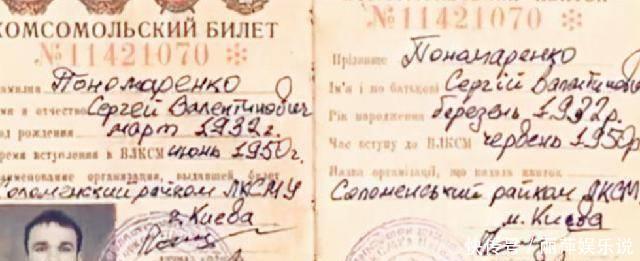 КОМСОМОЛЬСКИЙ БИЛЕТ
№ 11421070 *
амилия Пономаренко
мя и отчество Сергей Валентинович
од рождения март 1932 г.
ремя вступления в ВЛКСМ июнь 1950 г.
аименование организации, выдавшей билет
Соломенский райком ЛКСМУ
г. Киева
№ 11421070 *
Прізвище Пономаренко
Ім'я і по батькові Сергій Валентинов
Рік народження березень 1932 р.
Час вступу до ВЛКСМ червень 1950 р
Назва організації, що видала квиток
Соломенський райком ЛКСМ
м. Києва
快传号
娱乐说